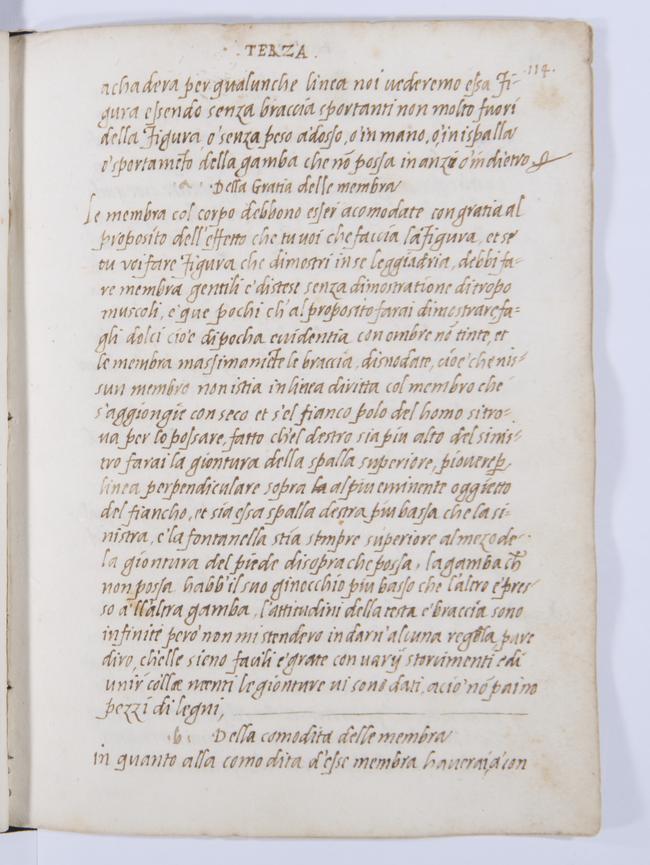 TERZA
114.
achadera per qualunche linea noi vederemo essa Fi-
gura essendo senza braccia sportanti non molto fuori
della Figura, o' senza peso adosso, o' in mano, o' in ispalla
o' sportamēto della gamba che nō possa inanzi o' indietro
Della Gratia delle membra
Le membra col corpo debbono esser acomodate con gratia al
proposito dell'effetto che tu voi che faccia la Figura, et se
tu voi fare Figura che dimostri in se leggiadria, debbi fa-
re membra gentili e' distese senza dimostratione di tropo
muscoli, e' que pochi ch'al proposito farai dimostrare fa-
gli dolci cioe di pocha evidentia con ombre nō tinte, et
le membra massimamēte le braccia, disnodate, cioe' che nis-
sun membro non istia in linea diritta col membro che
s'aggiongie con seco et s'el fianco polo del homo si tro-
va per lo possare, fatto ch'el destro sia piu alto del sinis-
tro farai la giontura della spalla superiore, piovere p
linea perpendiculare sopra al piu eminente oggietto
del fiancho, et sia essa spalla destra piu bassa che la si-
nistra, e' la fontanella stia sempre superiore al mezo de-
la giontura del piede di sopra che possa, la gamba ch̄
non possa habb'il suo ginocchio piu basso che l'altro e' pres-
so a' ll'altra gamba, l'attitudini della testa e' braccia sono
infinite pero' non mi stendero in darn'alcuna regola pure
diro, che elle sieno facili e' grate con varij storcimenti e di
unir colle le gionture vi sono dati, acio' nō paino
pezzi di legni,
.6. Della comodita delle membra
in quanto alla comodita d'esse membra haverai, a' con